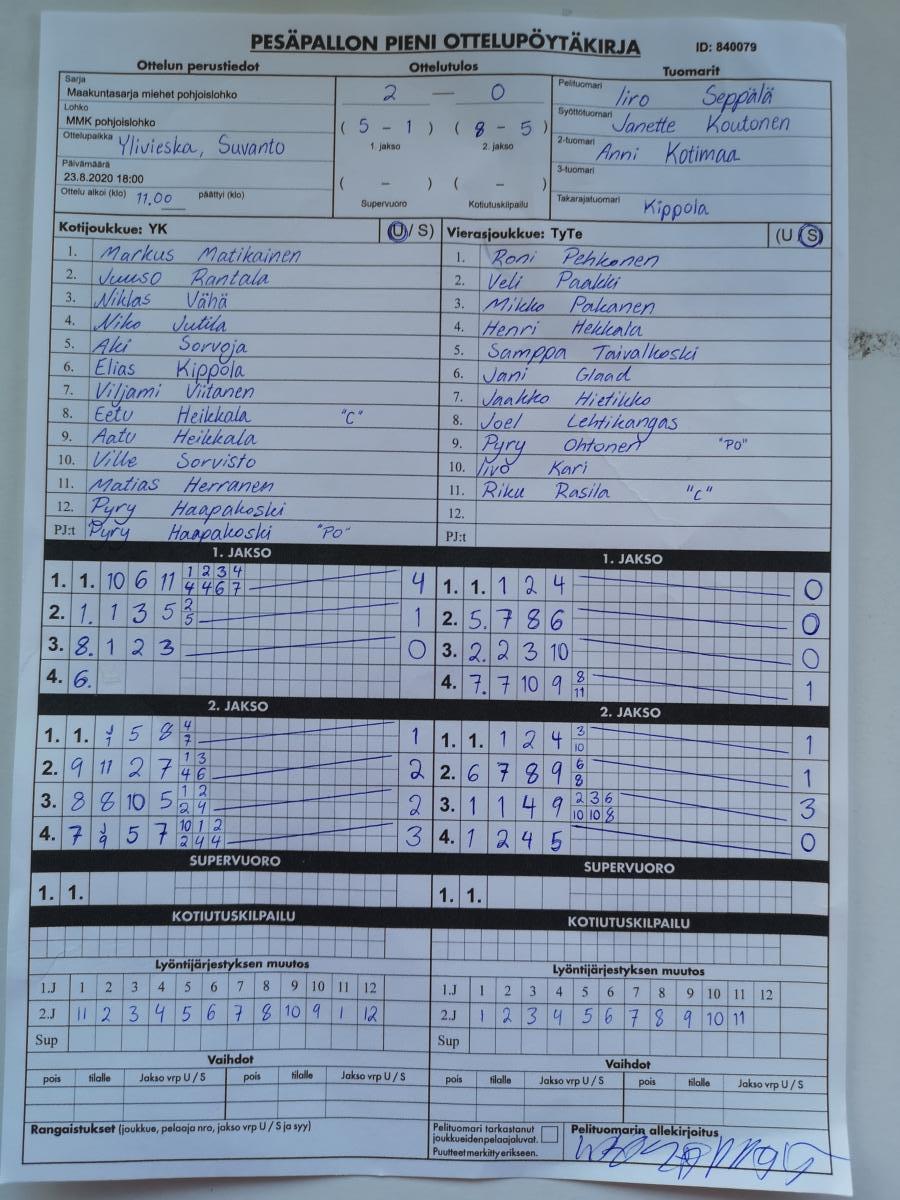 PESÄPALLON PIENI OTTELUPÖYTÄKIRJA ID: 840079
Ottelun perustiedot Ottelutulos Tuomarit
Sarja
Maakuntasarja miehet pohjoislohko
Lohko
MMK pohjoislohko
Ottelupaikka Ylivieska, Suvanto
Päivämäärä
23.8.2020 18:00
Ottelu alkoi (klo) 11.00 päättyi (klo)
2 — 0
( 5 - 1 ) ( 8 - 5 )
1. jakso 2. jakso
( - ) ( - )
Supervuoro Kotiutuskilpailu
Pelituomari Iiro Seppälä
Syöttötuomari Janette Koutonen
2-tuomari Anni Kotimaa
3-tuomari
Takarajatuomari Kippola
Kotijoukkue: YK (U / S)
1. Markus Matikainen
2. Juuso Rantala
3. Niklas Vähä
4. Niko Jutila
5. Aki Sorvoja
6. Elias Kippola
7. Viljami Viitanen
8. Eetu Heikkala "C"
9. Aatu Heikkala
10. Ville Sorvisto
11. Matias Herranen
12. Pyry Haapakoski
PJ:t Pyry Haapakoski "PO"
Vierasjoukkue: TyTe (U / S)
1. Roni Pehkonen
2. Veli Paakki
3. Mikko Pakanen
4. Henri Hekkala
5. Samppa Taivalkoski
6. Jani Glaad
7. Jaakko Hietikko
8. Joel Lehtikangas
9. Pyry Ohtonen "PO"
10. Iivo Kari
11. Riku Rasila "C"
12.
PJ:t
1. JAKSO
1. 1. 10 6 11 1 2 3 4 4
4 4 6 7
2. 1. 1 3 5 2 1
5
3. 8. 1 2 3 0
4. 6.
1. JAKSO
1. 1. 1 2 4 0
2. 5. 7 8 6 0
3. 2. 2 3 10 0
4. 7. 7 10 9 8 1
11
2. JAKSO
1. 1. J 5 8 4 1
1 7
2. 9 11 2 7 1 3 2
4 6
3. 8 8 10 5 1 2 2
2 4
4. 7 J 5 7 10 1 2 3
9 2 4 4
2. JAKSO
1. 1. 1 2 4 3 1
10
2. 6 7 8 9 6 1
8
3. 1 1 4 9 2 3 6 3
10 10 8
4. 1 2 4 5 0
SUPERVUORO
1. 1.
SUPERVUORO
1. 1.
KOTIUTUSKILPAILU
KOTIUTUSKILPAILU
Lyöntijärjestyksen muutos
1.J 1 2 3 4 5 6 7 8 9 10 11 12
2.J 11 2 3 4 5 6 7 8 10 9 1 12
Sup
Lyöntijärjestyksen muutos
1.J 1 2 3 4 5 6 7 8 9 10 11 12
2.J 1 2 3 4 5 6 7 8 9 10 11
Sup
Vaihdot
pois tilalle Jakso vrp U / S pois tilalle Jakso vrp U / S
Vaihdot
pois tilalle Jakso vrp U / S pois tilalle Jakso vrp U / S
Rangaistukset (joukkue, pelaaja nro, jakso vrp U / S ja syy)
Pelituomari tarkastanut
joukkueiden pelaajaluvat.
Puutteet merkitty erikseen.
Pelituomarin allekirjoitus